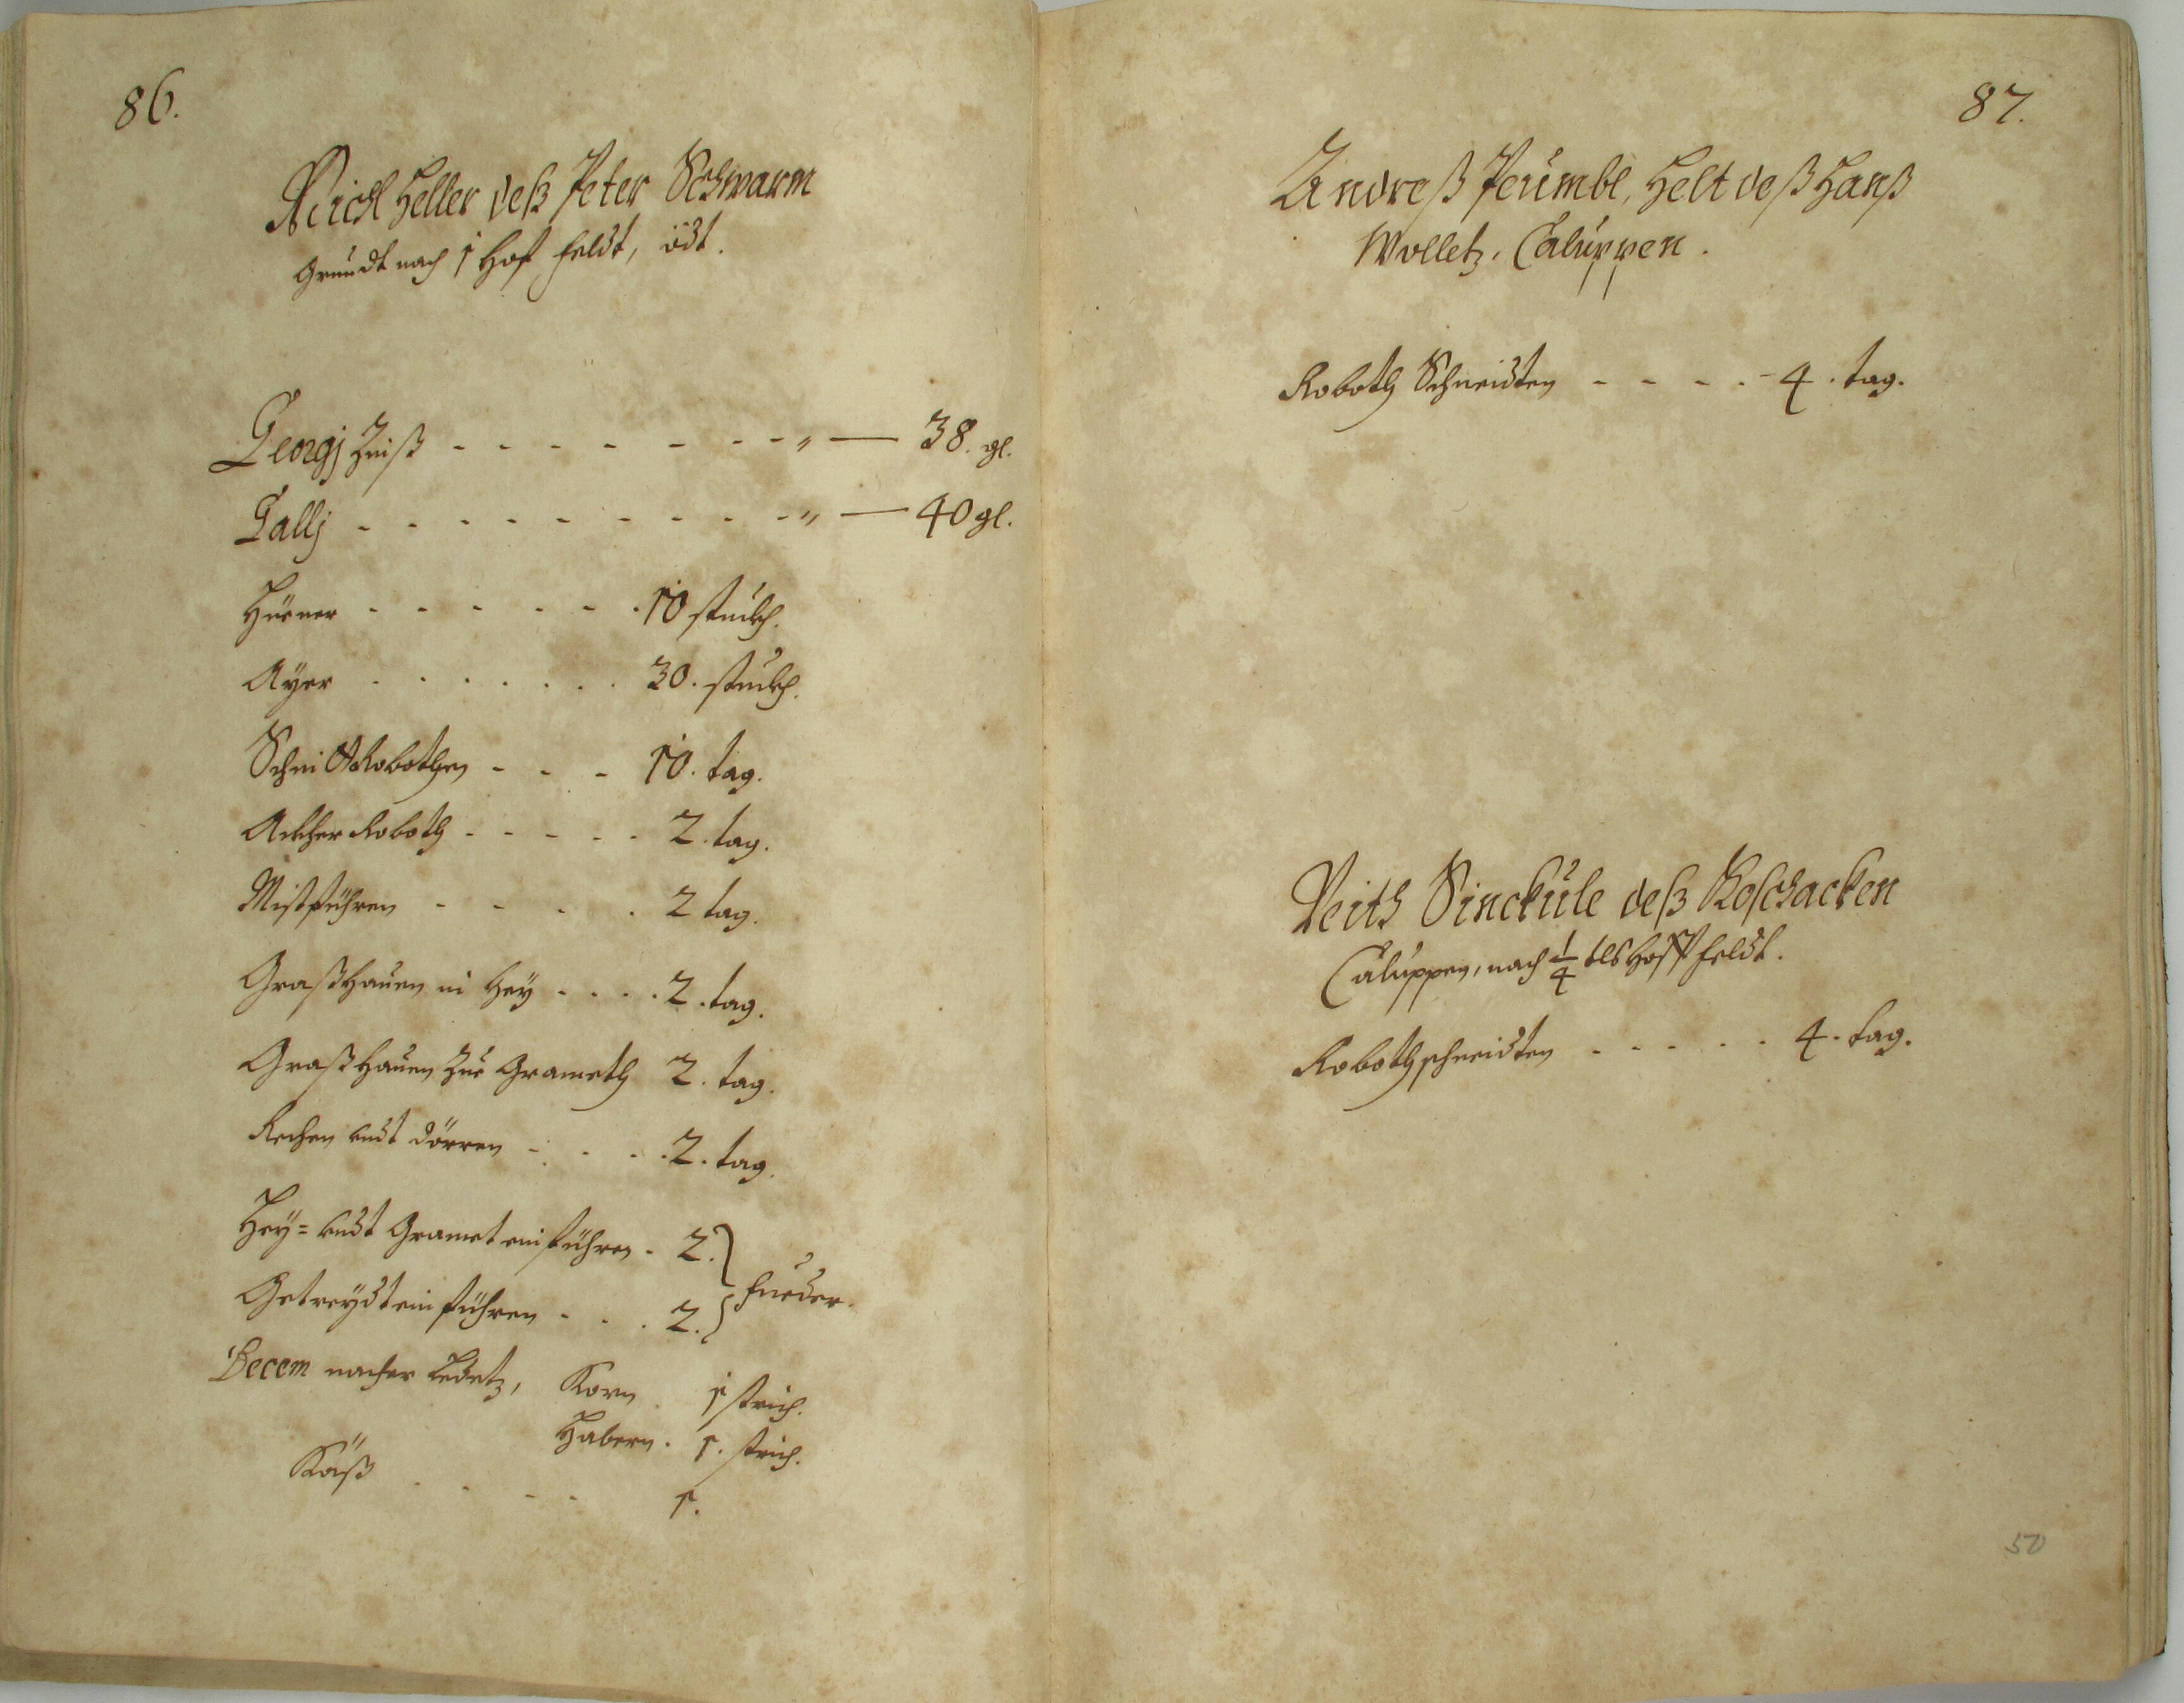 86.
Heller deß Peter Schwarm
Grundt nach 1 Hof feldt, ödt.
Georgj Zinß - - - - - - - - " — 38. gl.
Gallj - - - - - - - - - " — 40 gl.
Hüener - - - - - - 10 stuckh.
Ayer . . . . . . . 30. stuckh.
Schnitt Robothen - - - 10. tag.
Ackher Roboth - - - - - 2. tag.
Mistführen - - - . 2 tag.
Graßhauen in Hey - - - . 2. tag.
Graßhauen zue Grameth 2. tag.
Rechen undt dörren - . . . . 2. tag.
Hey= undt Gramet einführen . 2. } fueder.
Getreydt einführen . . . 2. }
Decem nacher Korn . 1 strich.
Habern . 1. strich.
Käß . . . . 1.
87.
Andreß Peümbl, Helt deß Hanß
Wolletz. Caluppen.
Roboth Schneidten - - - . - 4. tag.
Veith Sincküle deß Koschacken
Caluppen, nach 1/4 tls Hoff feldt.
Roboth schneidten . - - . . 4. tag.
50